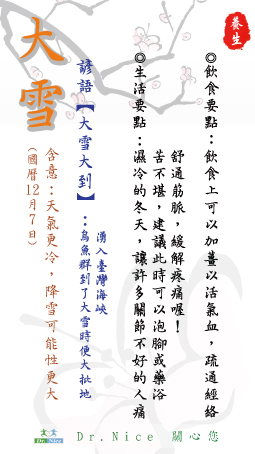 養生
◎飲食要點：飲食上可以加薑以活氣血，疏通經絡
◎生活要點：濕冷的冬天，讓許多關節不好的人痛
苦不堪，建議此時可以泡腳或藥浴
舒通筋脈，緩解疼痛喔！
諺語【大雪大到】：烏魚群到了大雪時便大批地
湧入臺灣海峽
大雪
含意：天氣更冷，降雪可能性更大
(國曆12月7日)
Dr. Nice
Dr.Nice 關心您